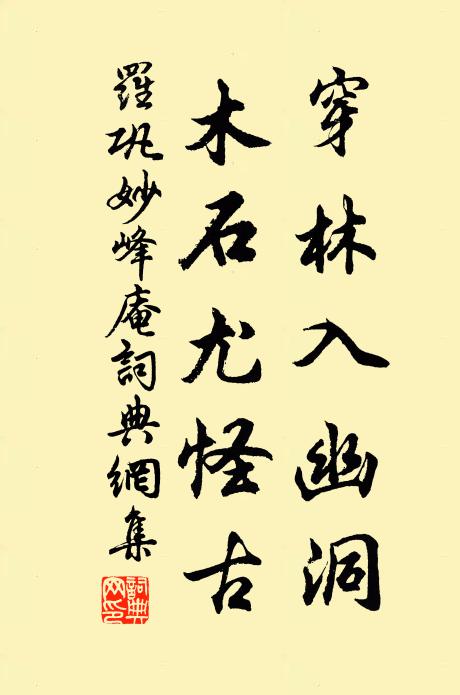 穿林入幽洞
木石尤怪古
羅巩妙峰庵詞典網集
詞典網印